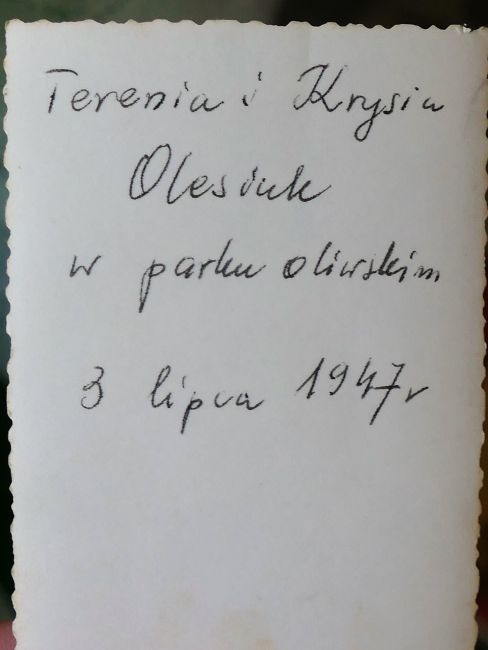 Terenia i Krysia
Olesiuk
w parku oliwskim
3 lipca 1947r